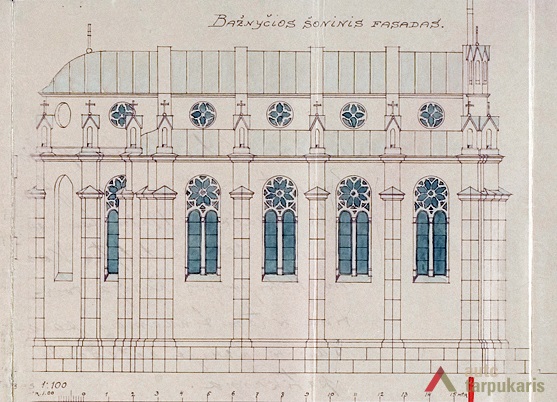 BAŽNYČIOS ŠONINIS FASADAS.
1:100
0 1 2 3 4 5 6 7 8 9 10 11 12 13 14
autc
tarpukaris